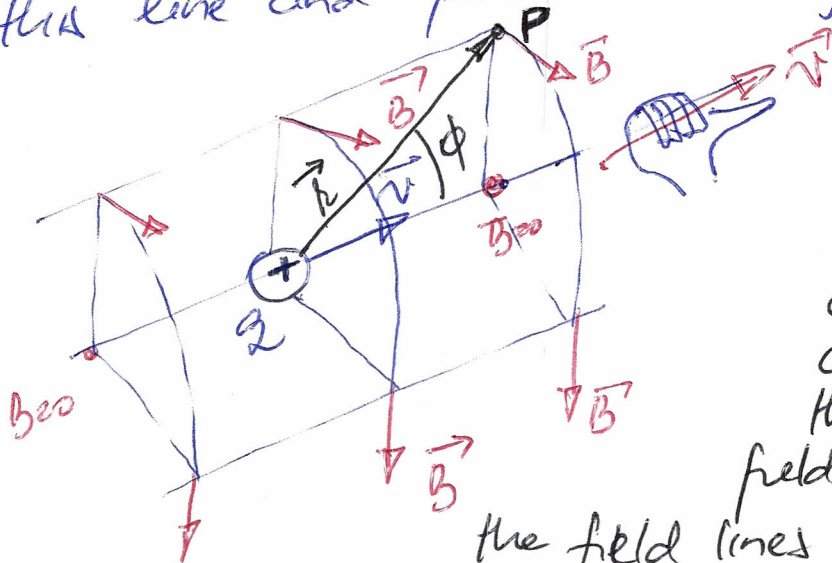 this line and
P
B
B
v
ϕ
r
v
B=0
+
q
B=0
B
B
field
the field lines